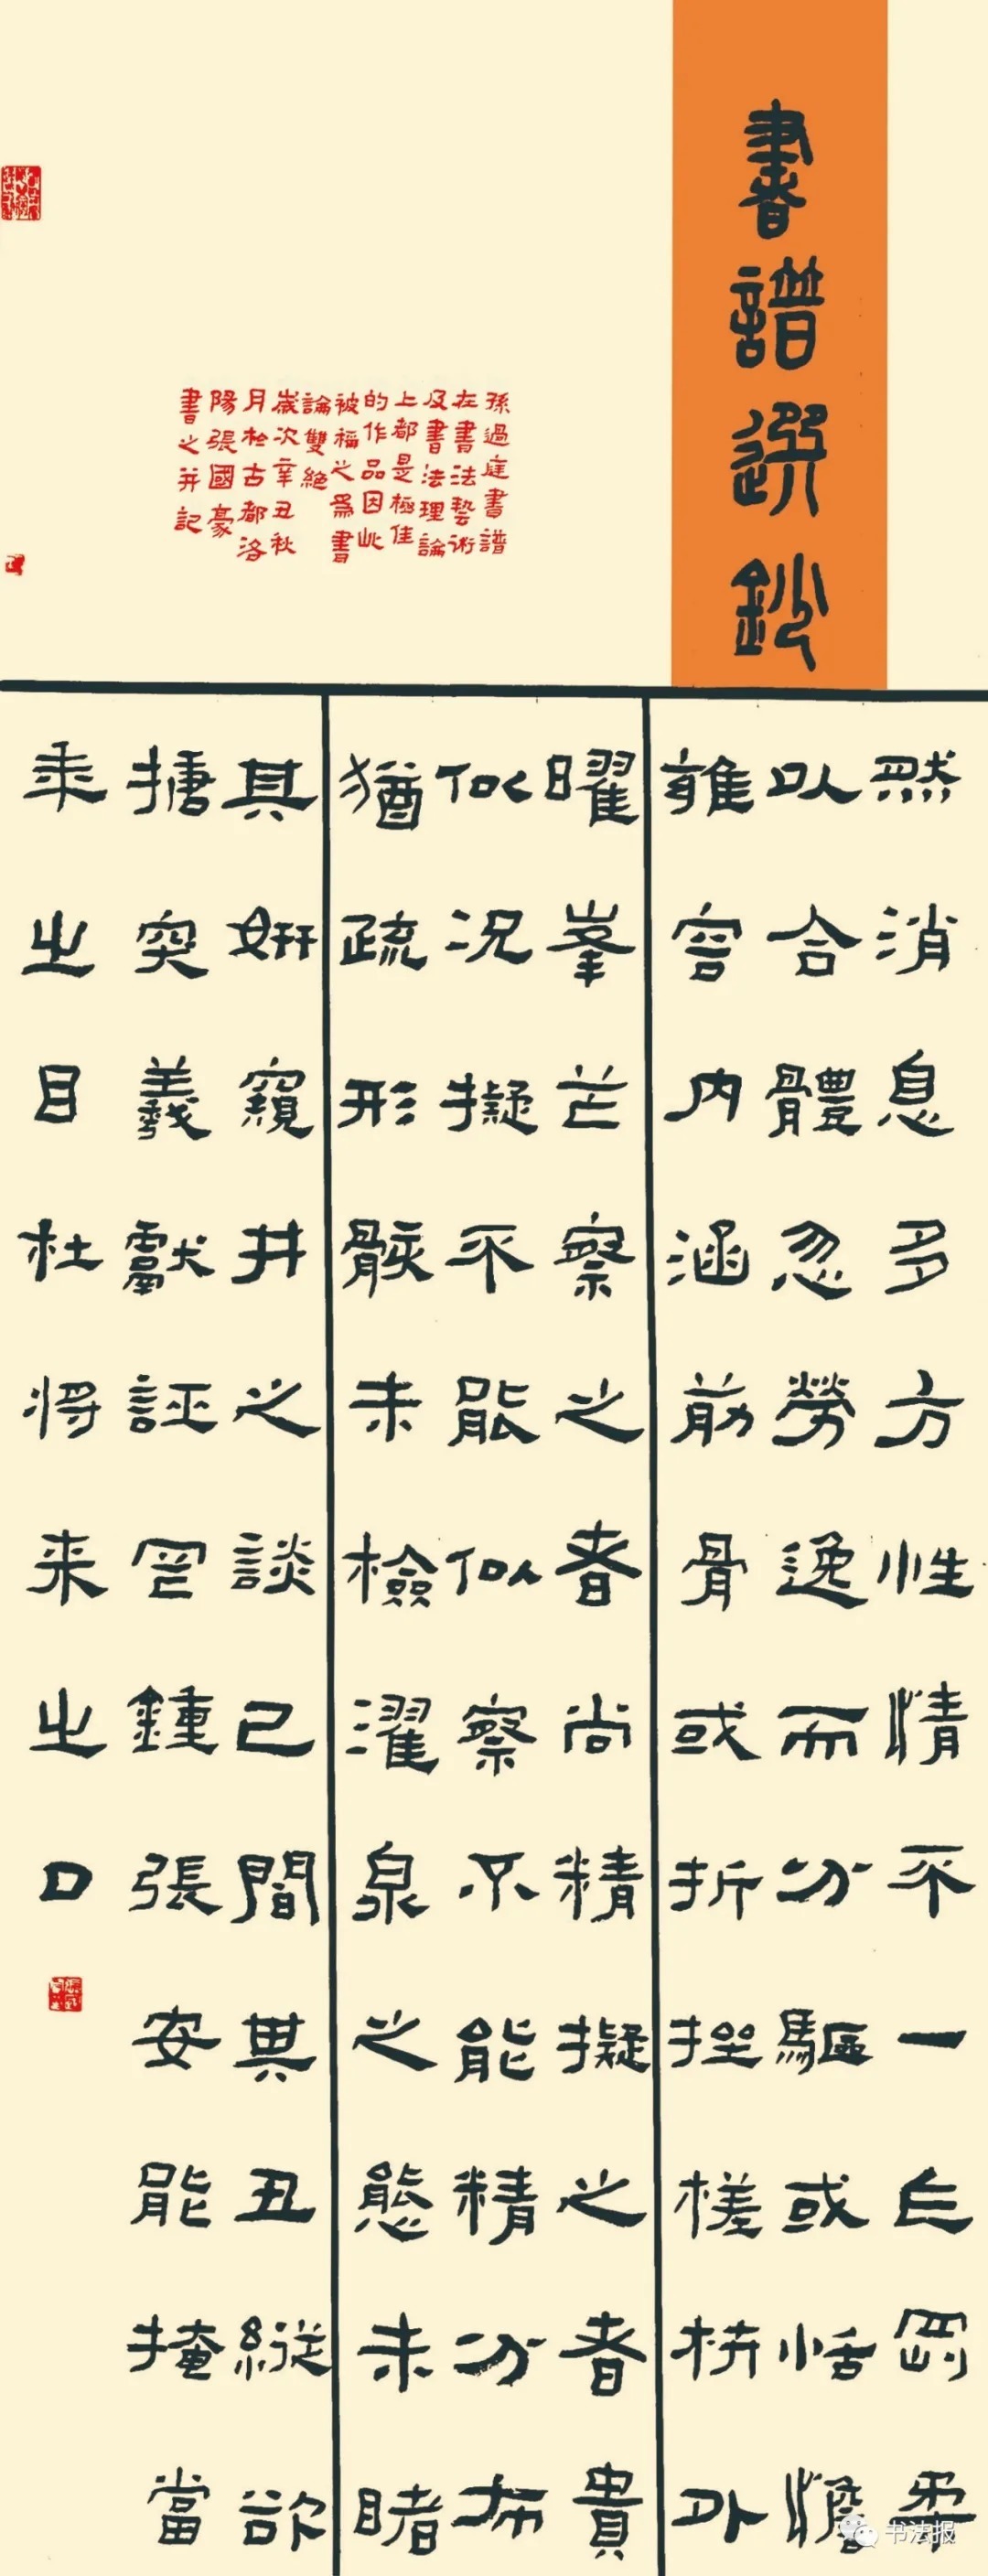 書譜選鈔
孫過庭書譜
在書法藝術
及書法理論
上都是極佳
的作品因此
被稱之爲書
論雙絶
歲次辛丑秋
月於古都洛
陽張國豪
書之并記
然消息多方性情不一乍剛柔
以合體忽勞逸而分驅或恬憺
雍容内涵筋骨或折挫槎枿外
曜峯芒察之者尚精擬之者貴
似况擬不能似察不能精分布
猶疏形骸未檢濯泉之態未睹
其妍窺井之談已間其丑縱欲
搪突羲獻誣罔鍾張安能掩當
年之目杜將来之口
书法报